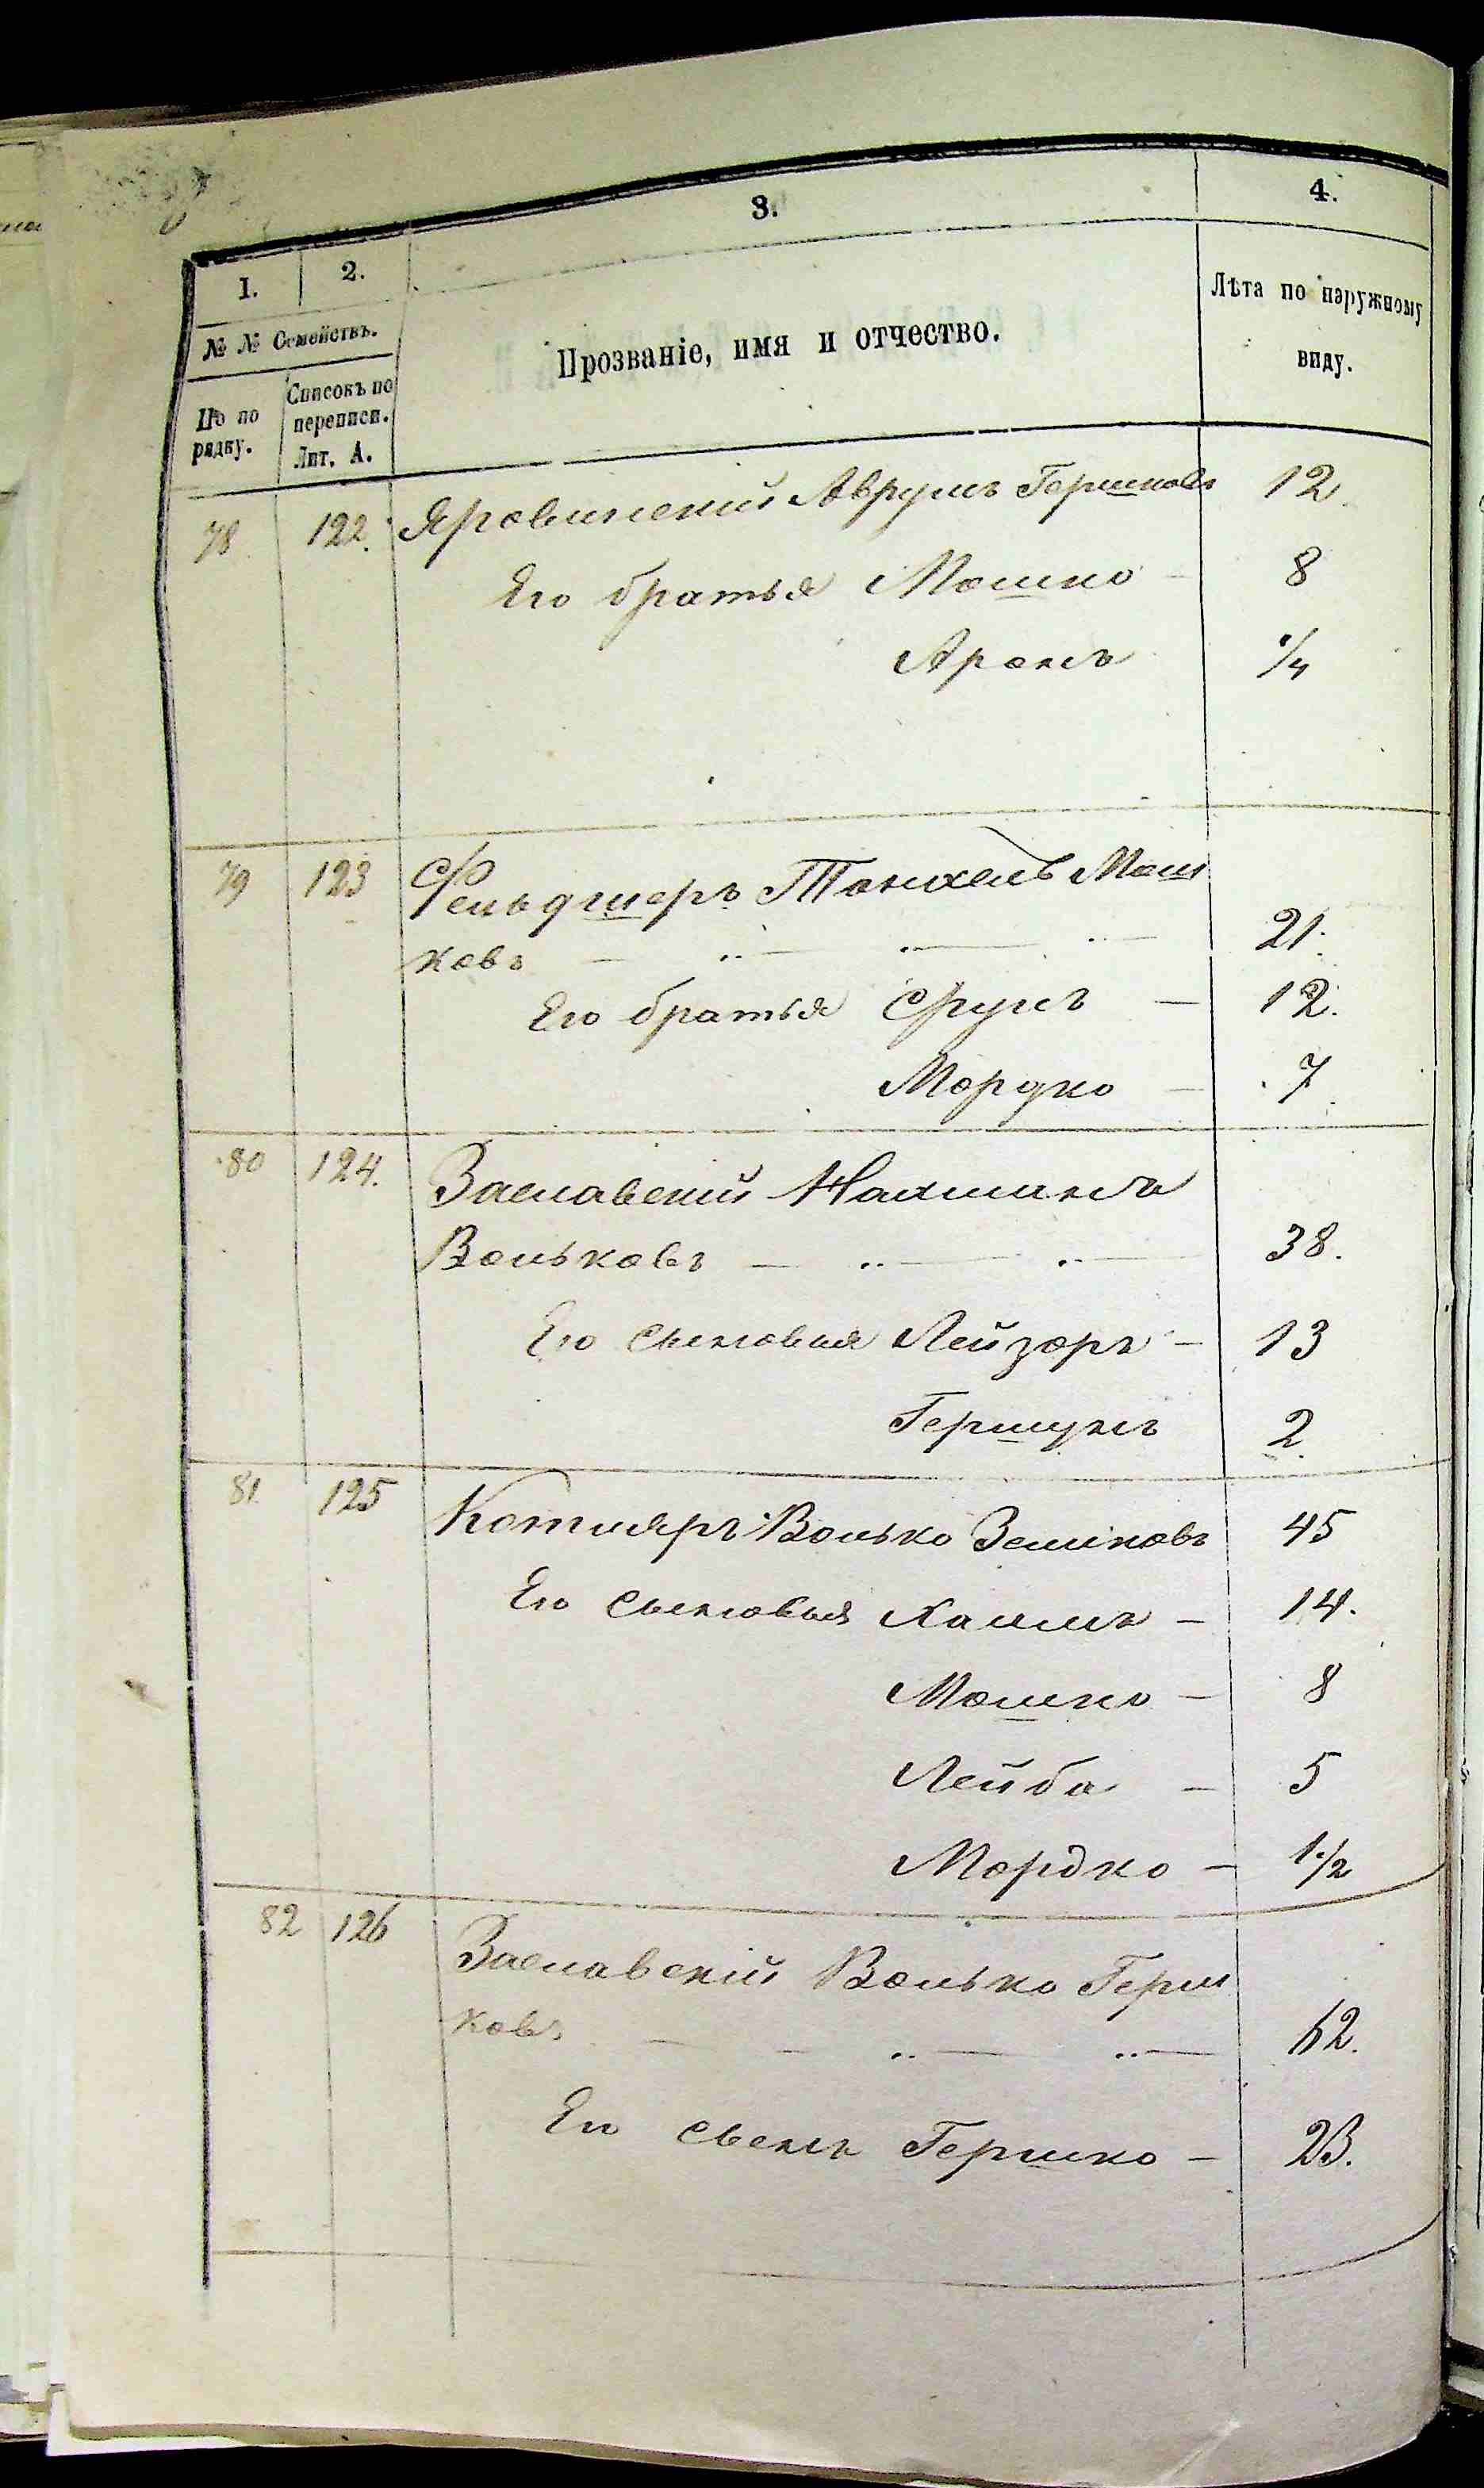 1. 2. 3. 4.
№ № Семействъ.
По по рядку.
Списокъ по переписи. Лит. А.
Прозваніе, имя и отчество.
Лѣта по наружному виду.
78 122. Яровинскій Аврумъ Гершковъ 12
Его братья Мошко - 8
Аронъ 1/4
79 123 Фельдшеръ Танхель Мош
ковъ 21.
Его братья Срулъ - 12.
Мордко - 7
80 124. Заславскій Нахманъ
Вольковъ 38.
Его сыновья Лейзоръ - 13
Гершунъ 2.
81. 125 Котляръ Волько Зельковъ 45
Его сыновья Хаимъ - 14.
Мошко - 8
Лейба - 5
Мордко - 1 1/2
82 126 Заславскій Волько Герш
ковъ 62.
Его сынъ Гершко - 23.